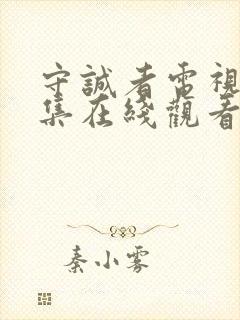 守誠者電視
集在綫觀看
秦小霧